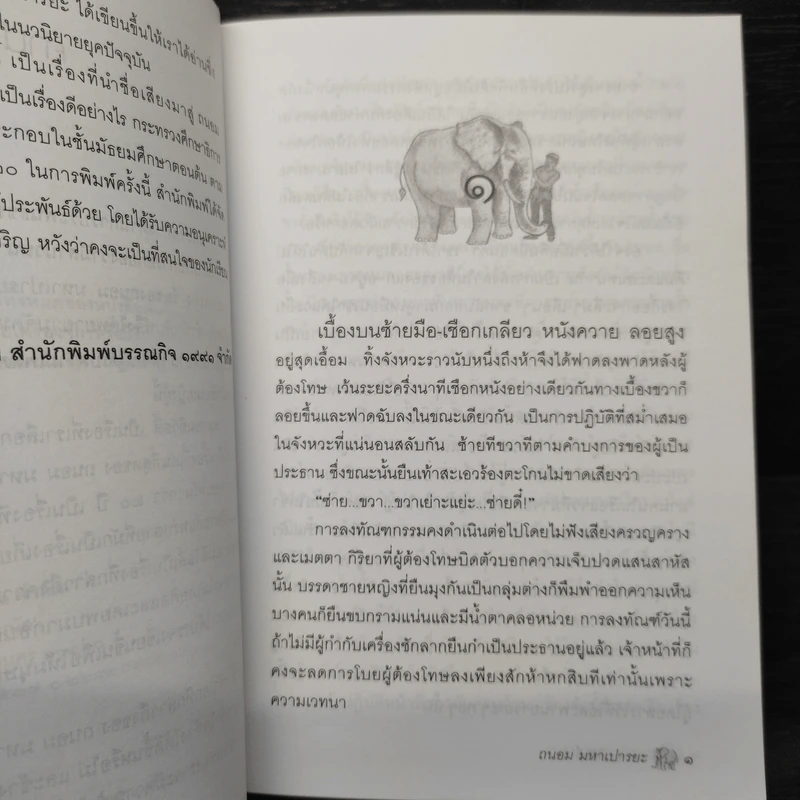 ได้เขียนขึ้นให้เราได้อ่านซึ่ง
ในนวนิยายยุคปัจจุบัน
เป็นเรื่องที่นำชื่อเสียงมาสู่ ถนอม
เป็นเรื่องดีอย่างไร กระทรวงศึกษาธิการ
ในชั้นมัธยมศึกษาตอนต้น ตาม
ในการพิมพ์ครั้งนี้ สำนักพิมพ์ได้จัด
ด้วย โดยได้รับความอนุเคราะห์
หวังว่าคงจะเป็นที่สนใจของนักเรียน
สำนักพิมพ์บรรณกิจ ๑๙๙๑ จำกัด
๑
เบื้องบนซ้ายมือ-เชือกเกลียว หนังควาย ลอยสูง
อยู่สุดเอื้อม ทิ้งจังหวะราวนับหนึ่งถึงห้าจึงได้ฟาดลงพาดหลังผู้
ต้องโทษ เว้นระยะครึ่งนาทีเชือกหนังอย่างเดียวกันทางเบื้องขวาก็
ลอยขึ้นและฟาดฉับลงในขณะเดียวกัน เป็นการปฏิบัติที่สม่ำเสมอ
ในจังหวะที่แน่นอนสลับกัน ซ้ายทีขวาทีตามคำบงการของผู้เป็น
ประธาน ซึ่งขณะนั้นยืนเท้าสะเอวร้องตะโกนไม่ขาดเสียงว่า
“ซ่าย...ขวา...ขวาเย่าะแย่ะ...ซ่ายดี๋!”
การลงทัณฑกรรมคงดำเนินต่อไปโดยไม่ฟังเสียงครวญคราง
และเมตตา กิริยาที่ผู้ต้องโทษบิดตัวบอกความเจ็บปวดแสนสาหัส
นั้น บรรดาชายหญิงที่ยืนมุงกันเป็นกลุ่มต่างก็พึมพำออกความเห็น
บางคนก็ยืนขบกรามแน่นและมีน้ำตาคลอหน่วย การลงทัณฑ์วันนี้
ถ้าไม่มีผู้กำกับเครื่องชักลากยืนกำเป็นประธานอยู่แล้ว เจ้าหน้าที่ก็
คงจะลดการโบยผู้ต้องโทษลงเพียงสักห้าหกสิบทีเท่านั้นเพราะ
ความเวทนา
ถนอม มหาเปารยะ ๑